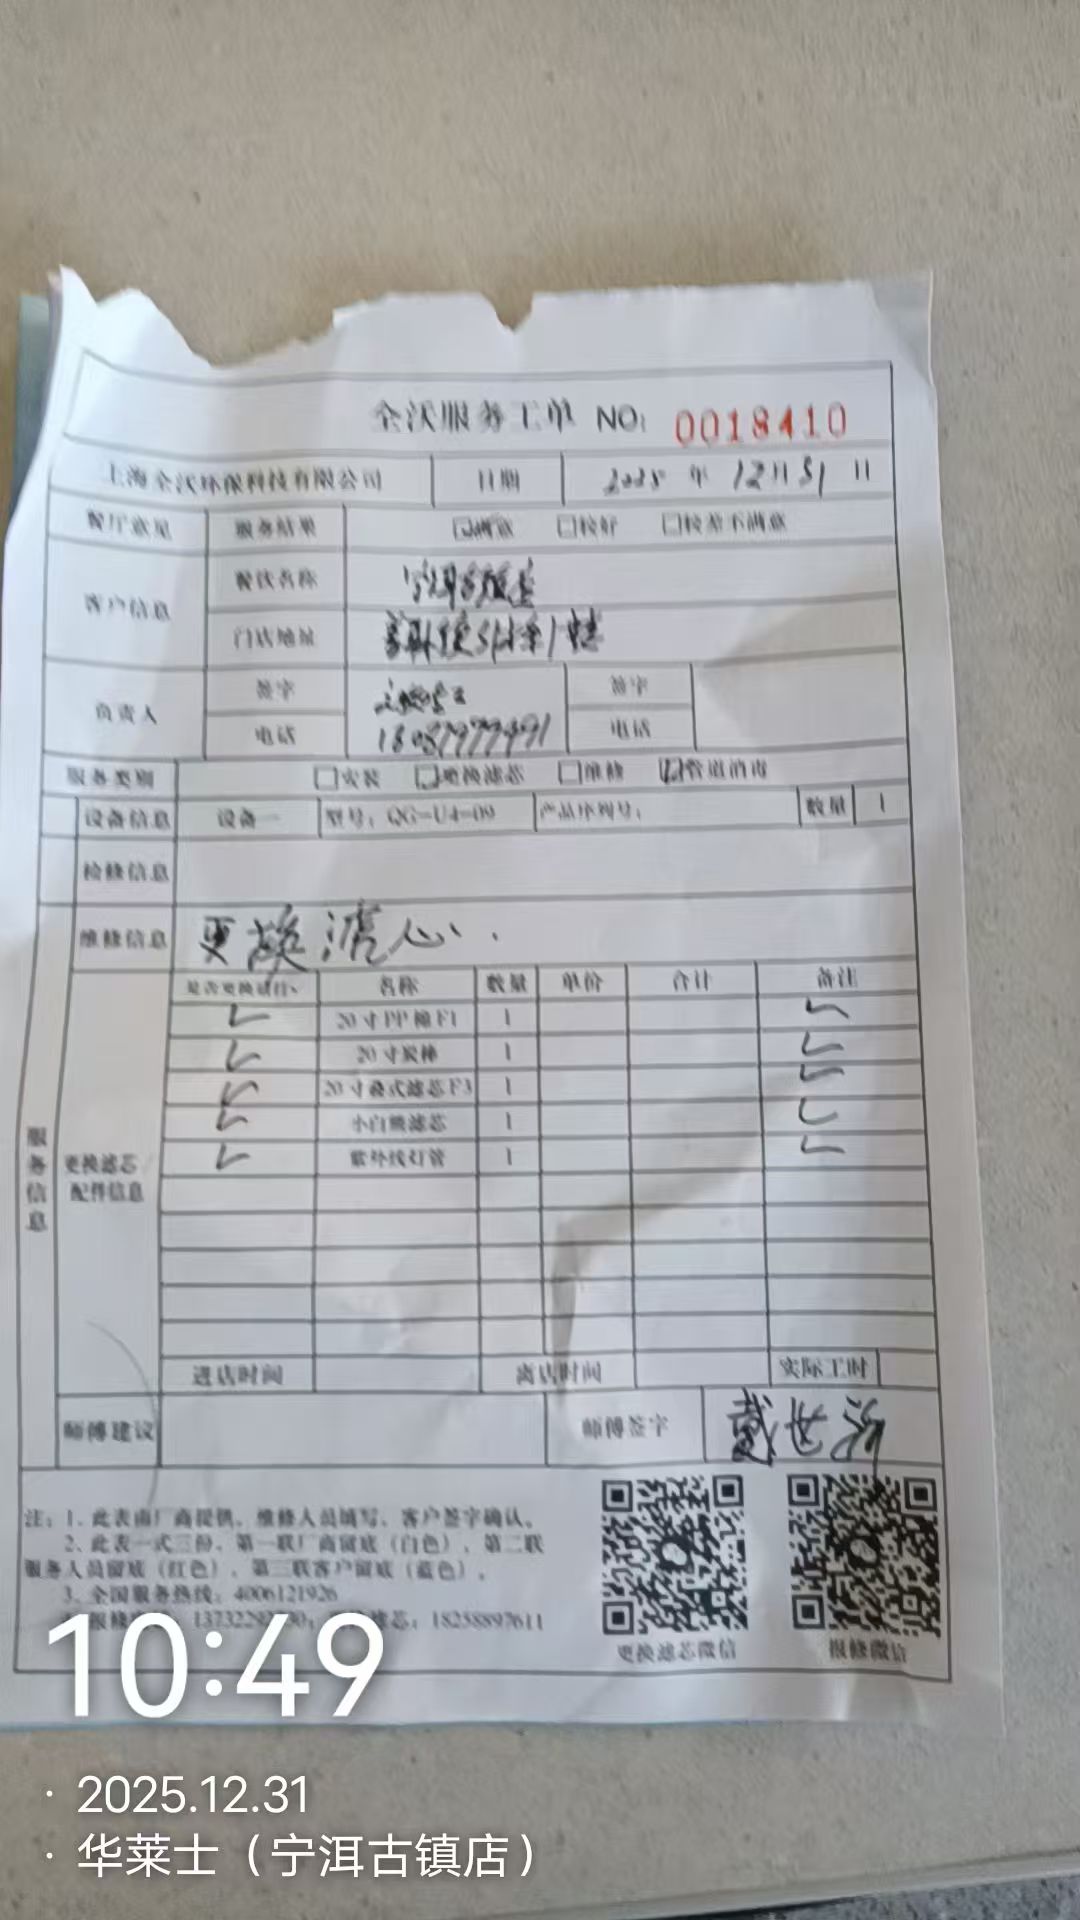 全沃服务工单 NO: 0018410
上海全沃环保科技有限公司 日期 2025 年 12月31 日
餐厅意见 服务结果 ☑满意 □较好 □较差不满意
客户信息 餐饮名称
门店地址
负责人 签字 签字
电话 电话
服务类别 □安装 □更换滤芯 □维修 ☑管道消毒
设备信息 设备一 型号：QG-U4-09 产品序列号： 数量 1
检修信息
维修信息 更换滤心
服务信息
更换滤芯配件信息
名称 数量 单价 合计 备注
✓ 20寸PP棉F1 1 ✓
✓ 20寸炭棒 1 ✓
✓ 20寸叠式滤芯F3 1 ✓
✓ 小白熊滤芯 1 ✓
✓ 紫外线灯管 1 ✓
进店时间 离店时间 实际工时
师傅建议 师傅签字
注：1、此表由厂商提供，维修人员填写，客户签字确认。
2、此表一式三份，第一联厂商留底（白色），第二联
服务人员留底（红色），第三联客户留底（蓝色）。
3、全国服务热线：4006121926
18258897611
更换滤芯微信 报修微信
10:49
· 2025.12.31
· 华莱士（宁洱古镇店）